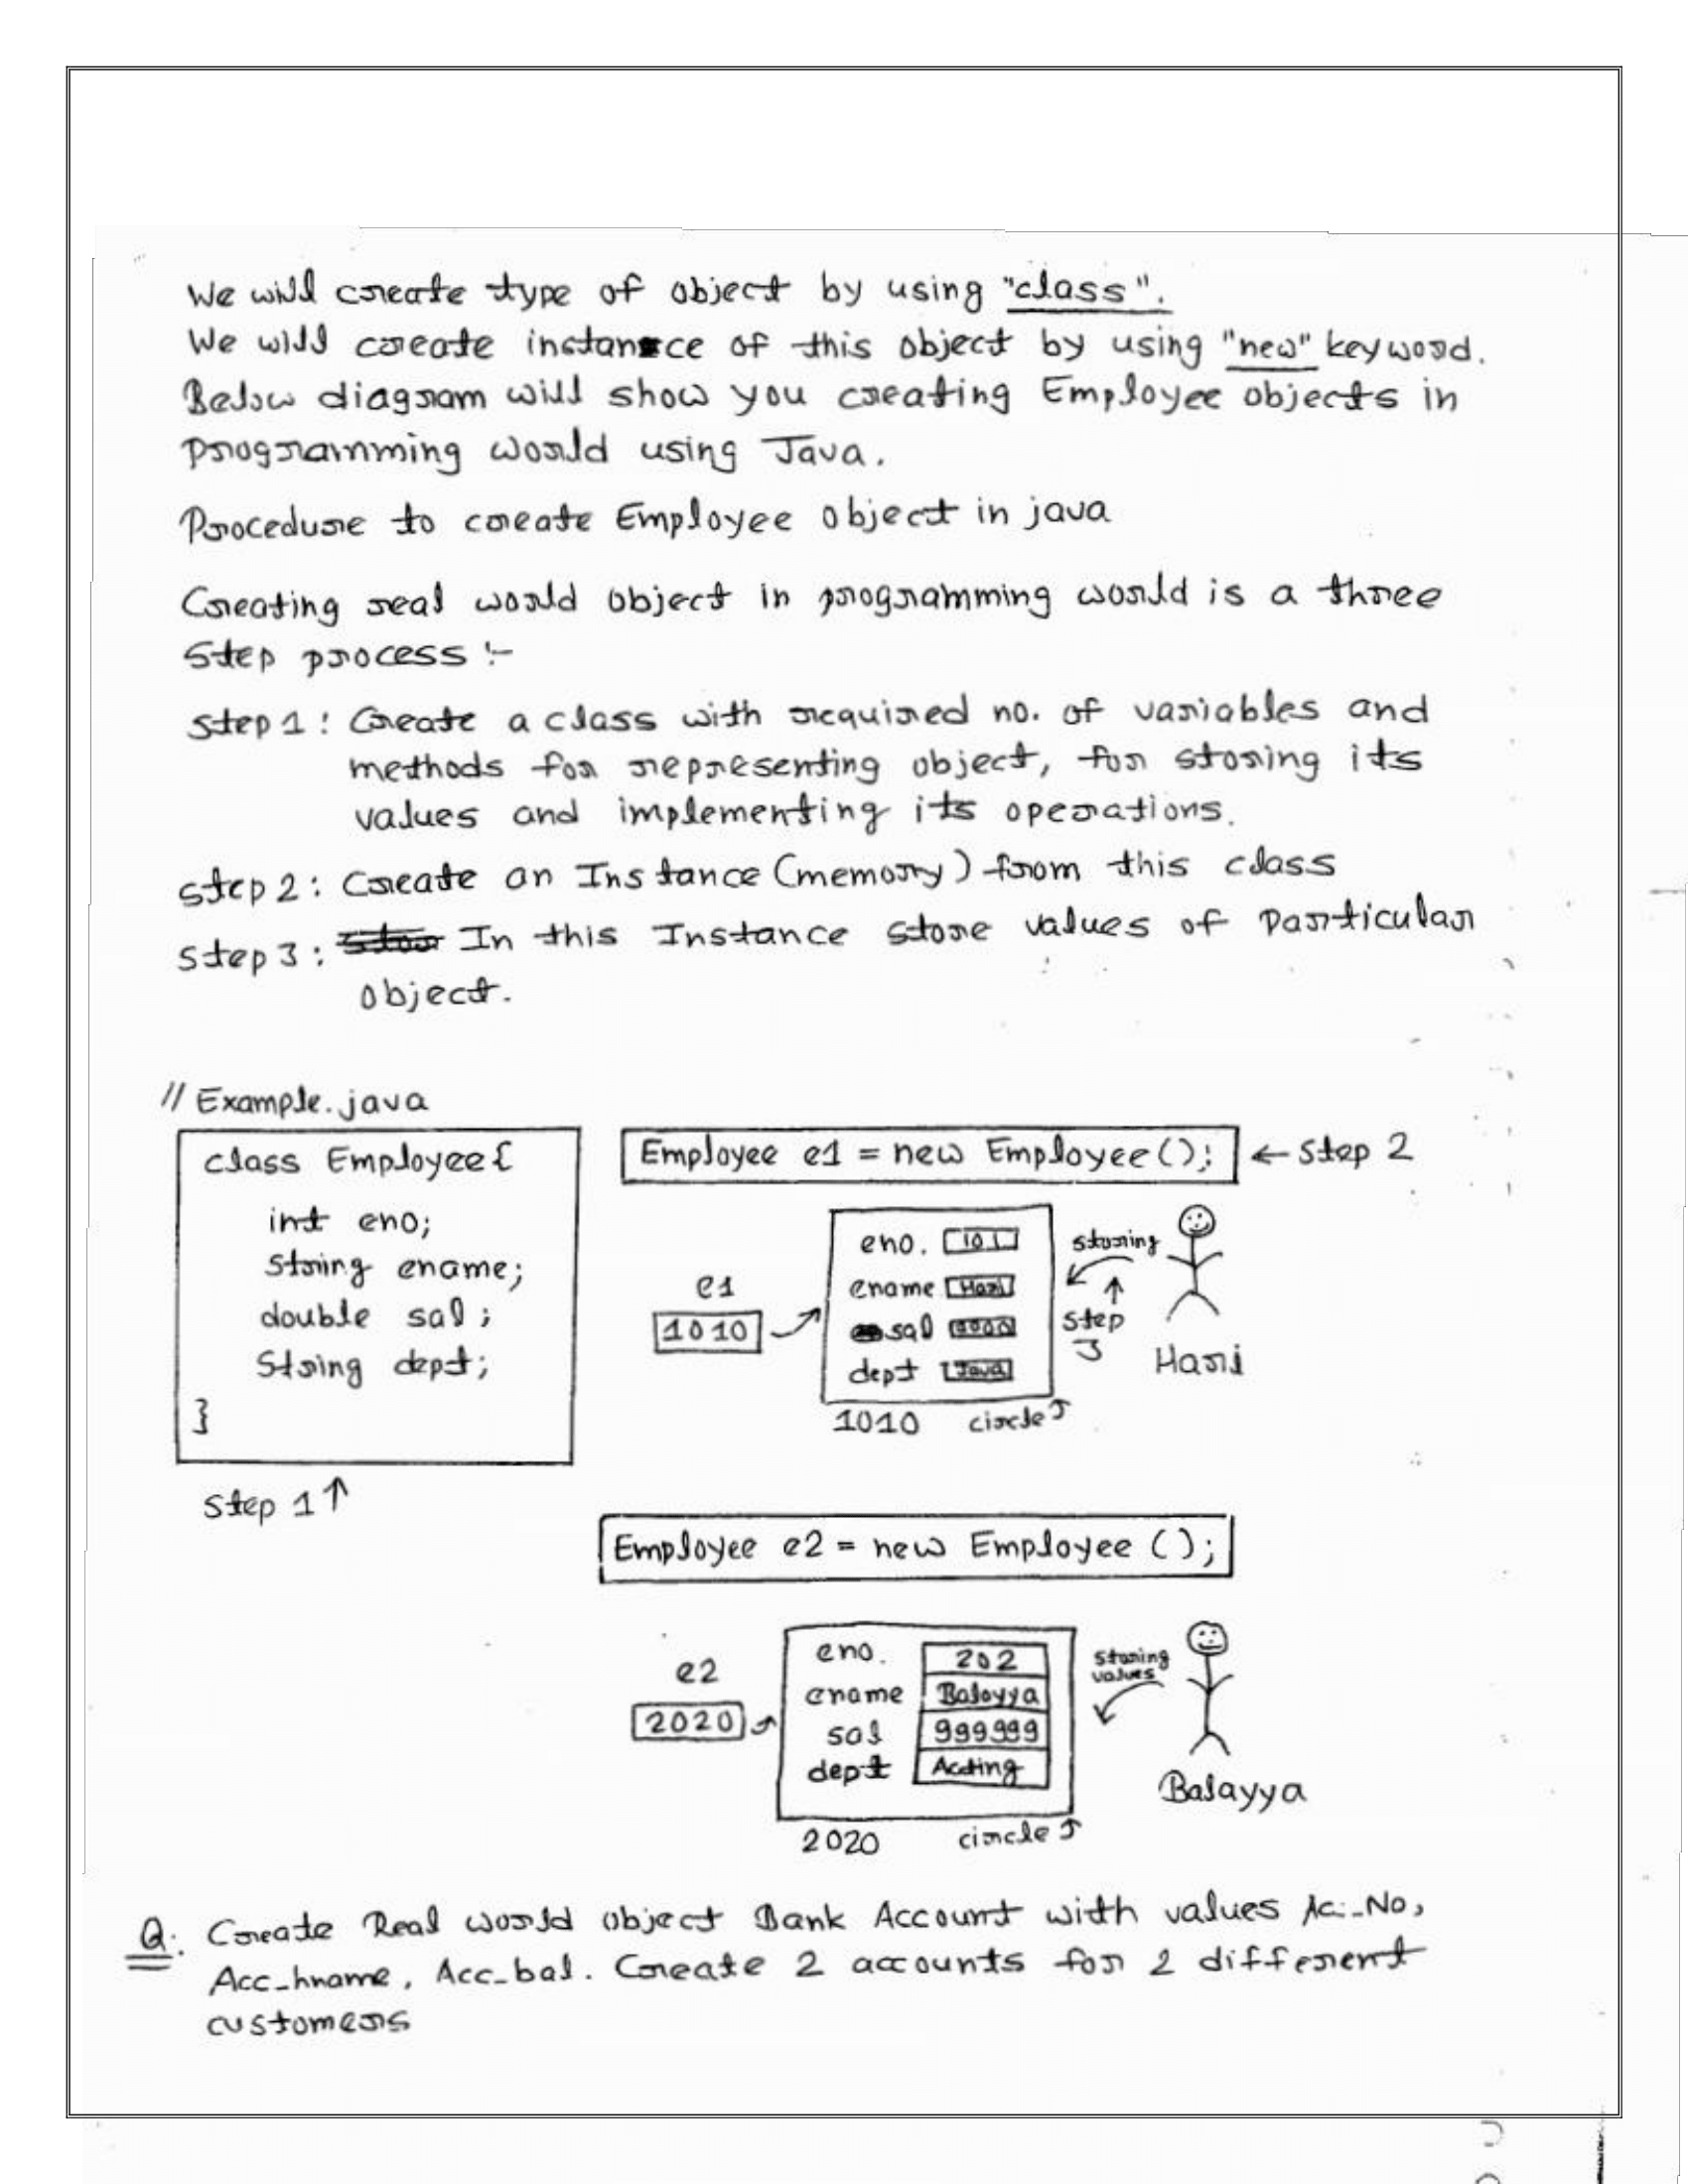 We will create type of object by using "class".
We will create instance of this object by using "new" keyword.
Below diagram will show you creating Employee objects in
programming world using Java.
Procedure to create Employee object in java
Creating real world object in programming world is a three
step process :-
step 1 : Create a class with required no. of variables and
methods for representing object, for storing its
values and implementing its operations.
step 2 : Create an Instance (memory) from this class
step 3 : In this Instance store values of Particular
object.
// Example.java
class Employee{
int eno;
String ename;
double sal;
String dept;
}
Step 1 ↑
Employee e1 = new Employee(); ← Step 2
e1
1010
eno. 101
ename Hari
sal
dept Java
1010 circle ↑
storing
↑
step
3
Hari
Employee e2 = new Employee ();
e2
2020
eno. 202
ename Balayya
sal 999999
dept Acting
2020 circle ↑
storing
values
Balayya
Q: Create Real world object Bank Account with values Ac_No,
Acc_hname, Acc_bal. Create 2 accounts for 2 different
customers